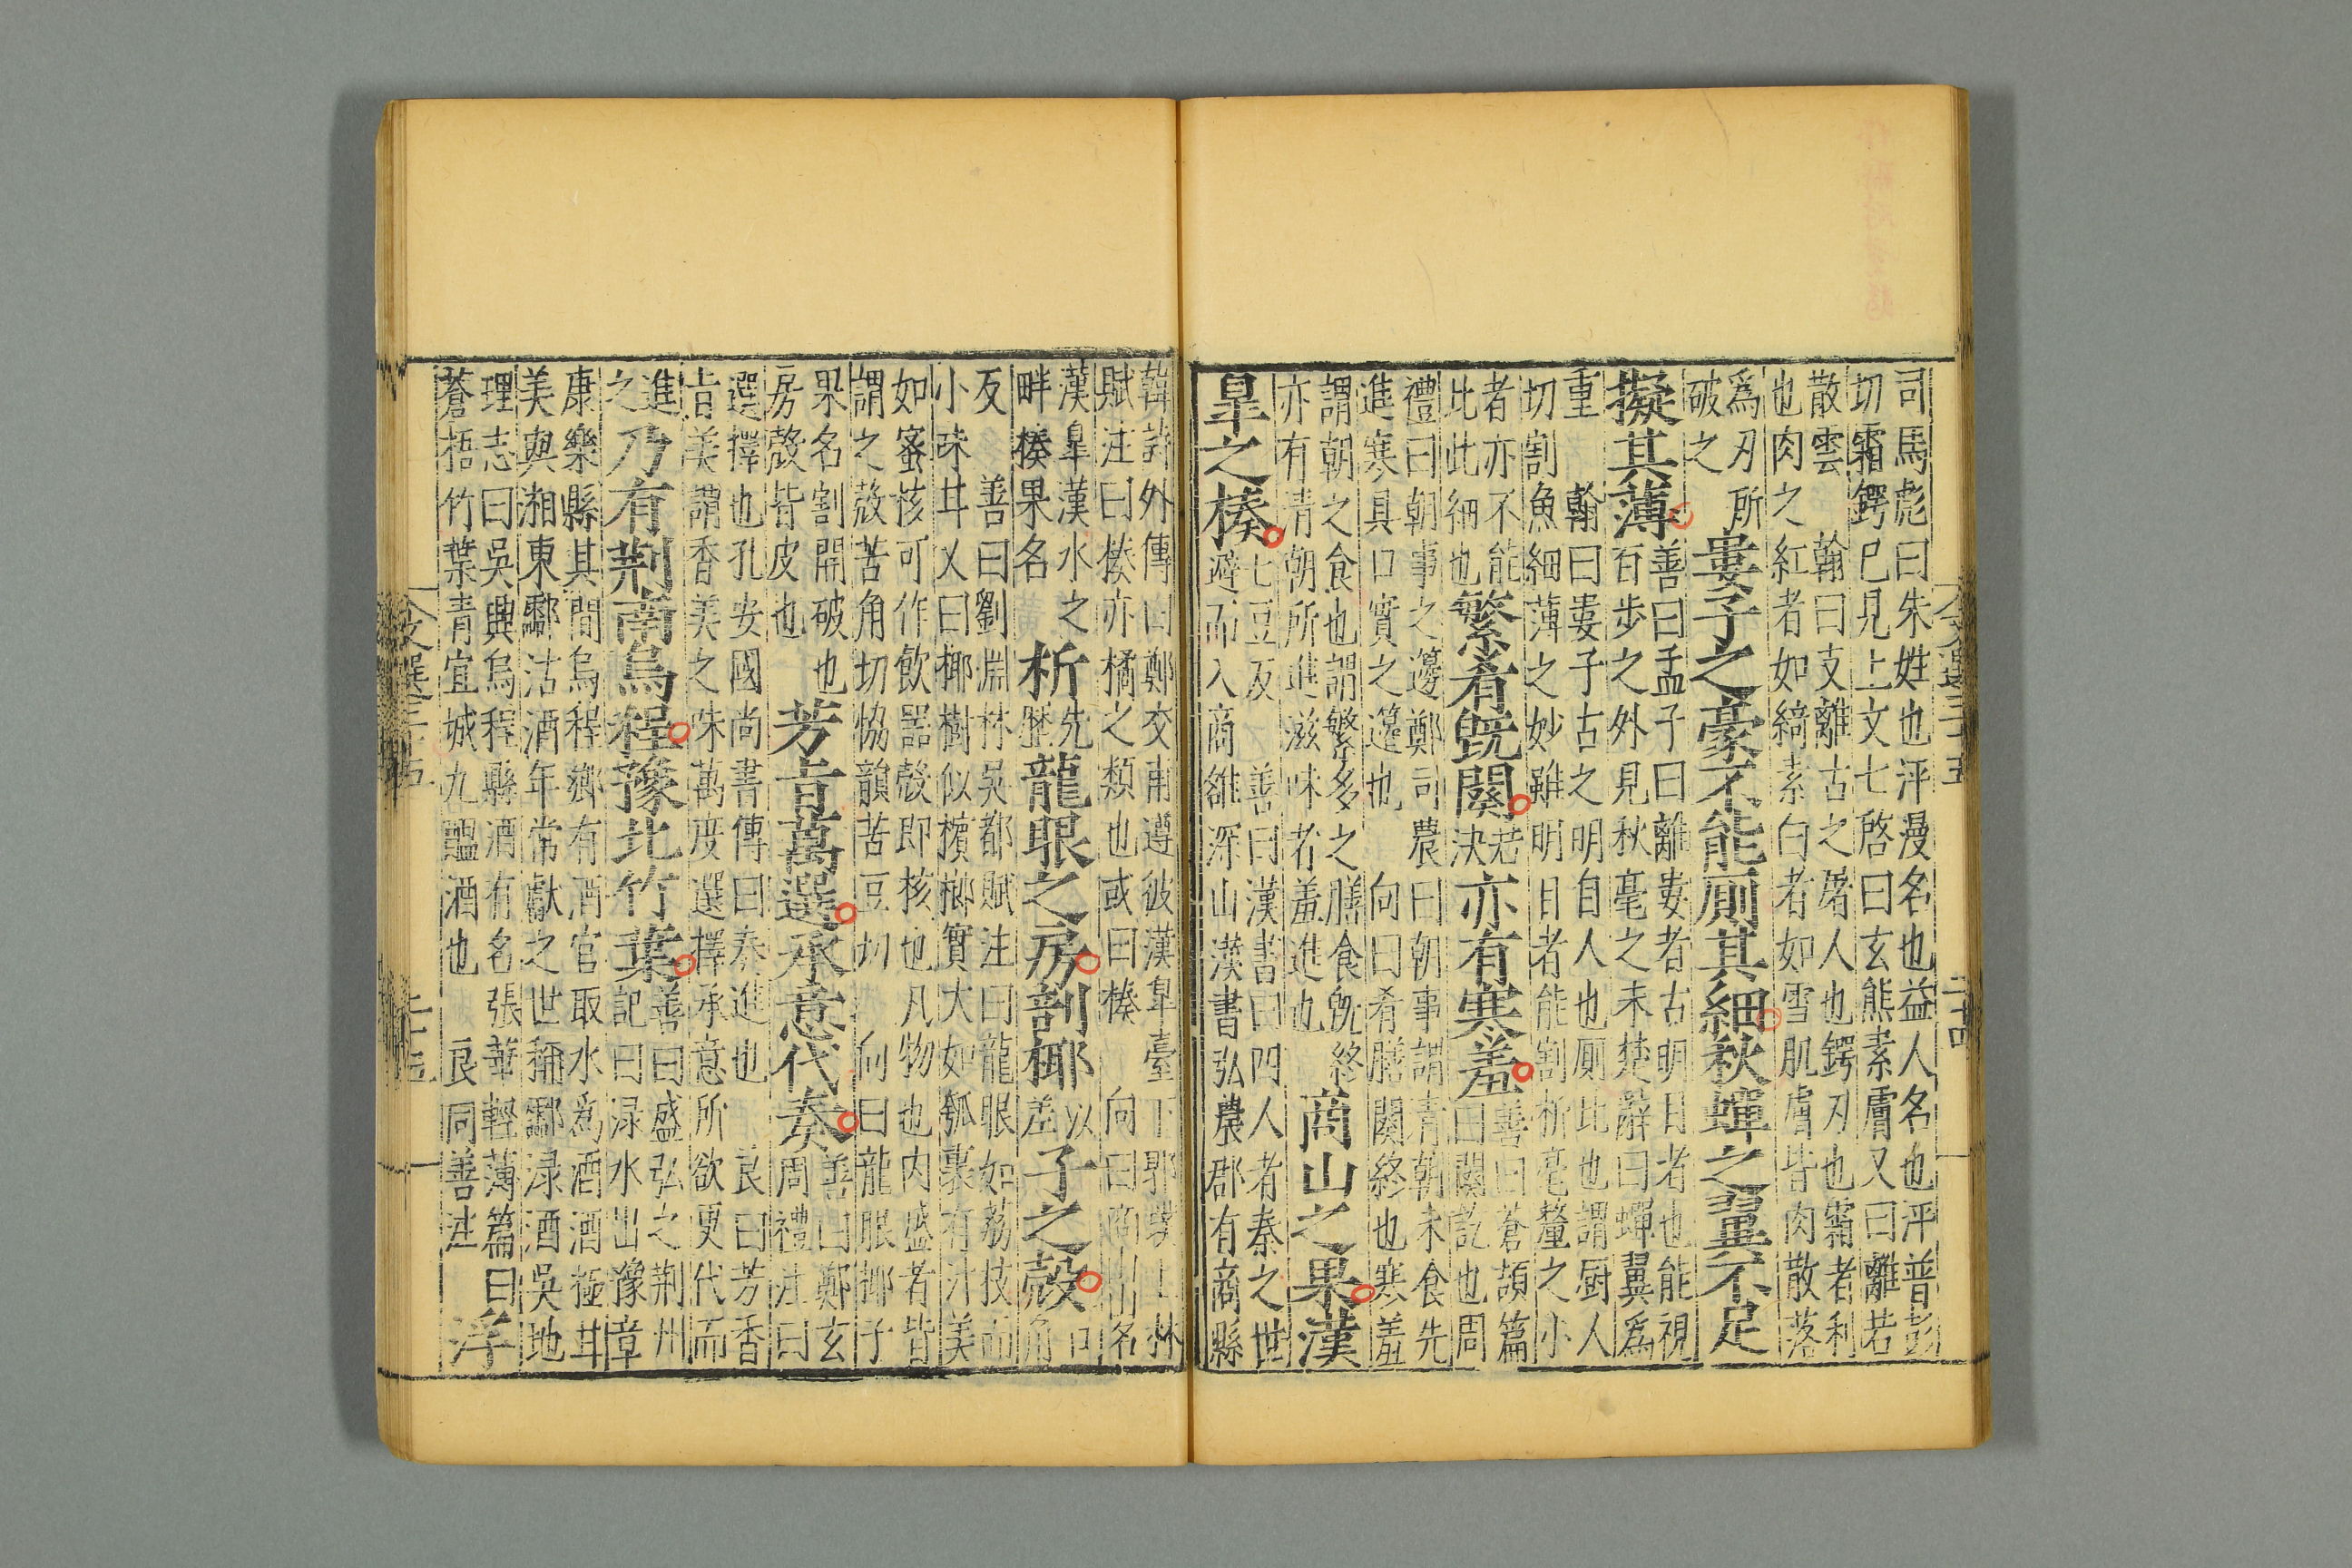 司馬彪曰朱姓也泙漫名也益人名也泙普彭
切霜鍔巳見上文七啓曰玄熊素膚又曰離若
散雲 翰曰支離古之屠人也鍔刃也霜者利
也肉之紅者如綺素白者如雪肌膚皆肉散落
爲刃所
破之
婁子之豪不能廁其細秋蟬之翼不足
擬其薄
善曰孟子曰離婁者古明目者也能視
百步之外見秋毫之末楚辭曰蟬翼爲
重 翰曰婁子古之明自人也廁比也謂厨人
切割魚細薄之妙雖明目者能割析毫釐之小
者亦不能
此此細也
繁肴旣闋
苦
決
亦有寒羞
善曰蒼頡篇
曰闋訖也周
禮曰朝事之籩鄭司農曰朝事謂清朝未食先
進寒具口實之籩也 向曰肴膳闋終也寒羞
謂朝之食也謂繁多之膳食旣終
亦有清朝所進滋味者羞進也
商山之果漢
臯之楱
七豆反 善曰漢書曰四人者秦之世
避而入商雒深山漢書弘農郡有商縣
文選三十五
二十四
韓詩外傳曰鄭交甫遵彼漢臯臺下郭璞上林
賦注曰楱亦橘之類也或曰楱 向曰商山名
漢臯漢水之
畔楱果名
析
先
歷
龍眼之房剖椰
以
差
子之殼
口
角
反 善曰劉淵林吳都賦注曰龍眼如荔枝而
小味甘又曰椰樹似檳榔實大如瓠裏有汁美
如蜜核可作飲器殼即核也凡物也内盛者皆
謂之殼苦角切恊韻苦豆切 向曰龍眼椰子
果名割開破也
房殼皆皮也
芳旨萬選承意代奏
善曰鄭玄
周禮注曰
選擇也孔安國尚書傳曰奏進也 良曰芳香
旨美謂香美之味萬度選擇承意所欲更代而
進
之
乃有荆南烏程豫北竹葉
善曰盛弘之荆州
記曰渌水出豫章
康樂縣其間烏程鄉有酒官取水爲酒酒極甘
美與湘東酃沽酒年常獻之世稱酃渌酒吳地
理志曰吳興烏程縣酒有名張華輕薄篇曰
蒼梧竹葉青宜城九醞酒也 良同善注
浮